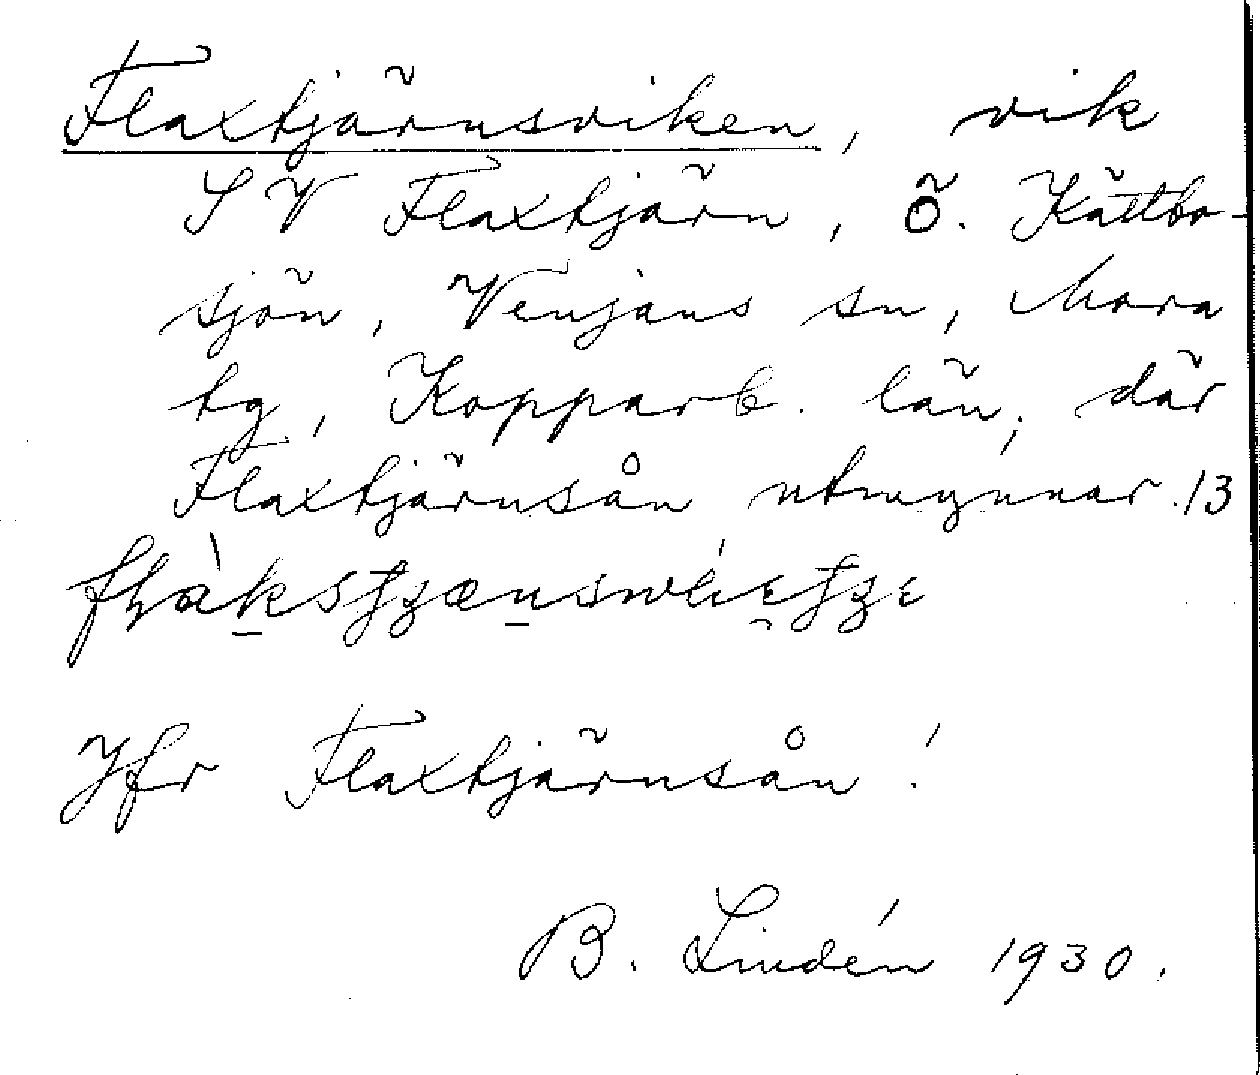 Flaxtjärnsviken, vik
S V Flaxtjärn, Ö. Kättbo-
sjön, Venjans sn, Mora
tg, Kopparb. län; där
Flaxtjärnsån utmynnar. 13
Jfr Flaxtjärnsån!
B. Lindén 1930.